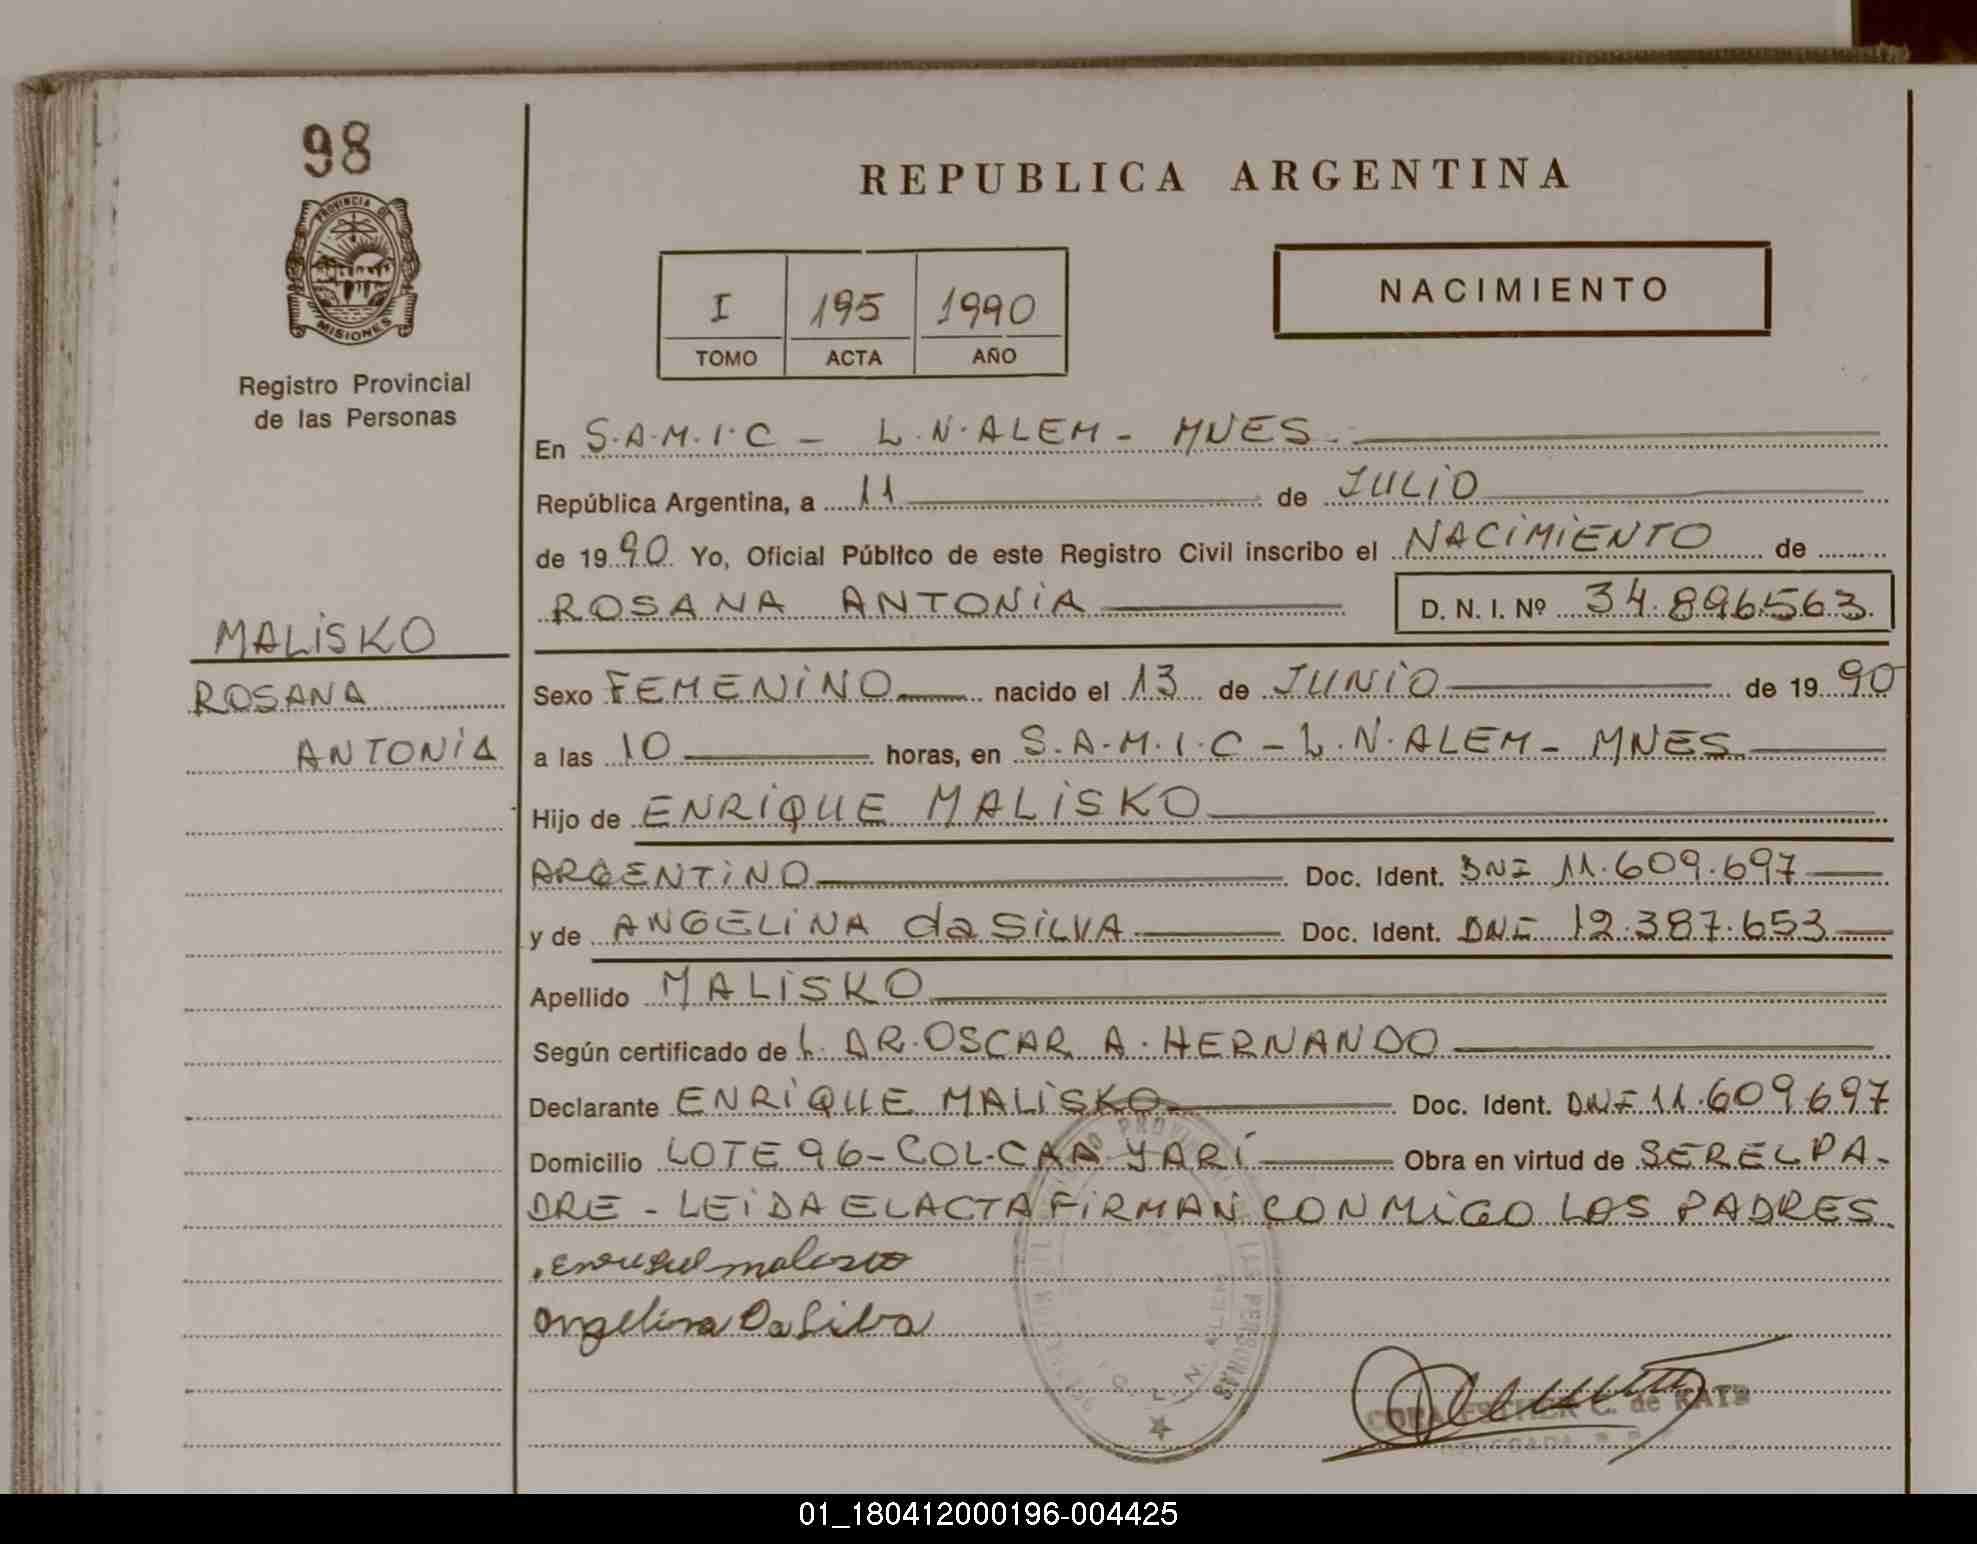 98
PROVINCIA DE
MISIONES
Registro Provincial
de las Personas
MALISKO
ROSANA
ANTONIA
REPUBLICA ARGENTINA
I 195 1990
TOMO ACTA AÑO
NACIMIENTO
En S.A.M.I.C - L.N.ALEM - MNES
República Argentina, a 11 de JULIO
de 1990 Yo, Oficial Público de este Registro Civil inscribo el NACIMIENTO de
ROSANA ANTONIA D. N. I. Nº 34.896563
Sexo FEMENINO nacido el 13 de JUNIO de 1990
a las 10 horas, en S.A.M.I.C - L.N.ALEM - MNES
Hijo de ENRIQUE MALISKO
ARGENTINO Doc. Ident. DNI 11.609.697
y de ANGELINA da SILVA Doc. Ident. DNI 12.387.653
Apellido MALISKO
Según certificado de L. DR. OSCAR A. HERNANDO
Declarante ENRIQUE MALISKO Doc. Ident. DNI 11.609697
Domicilio LOTE 96 - COL. CAA YARÍ Obra en virtud de SER EL PA-
DRE - LEIDA EL ACTA FIRMAN CONMIGO LOS PADRES.
malisko
Angelina Da Silva
PERSONAS
L.N. ALEM
ESTHER C. de KATZ
DELEGADA
01_180412000196-004425